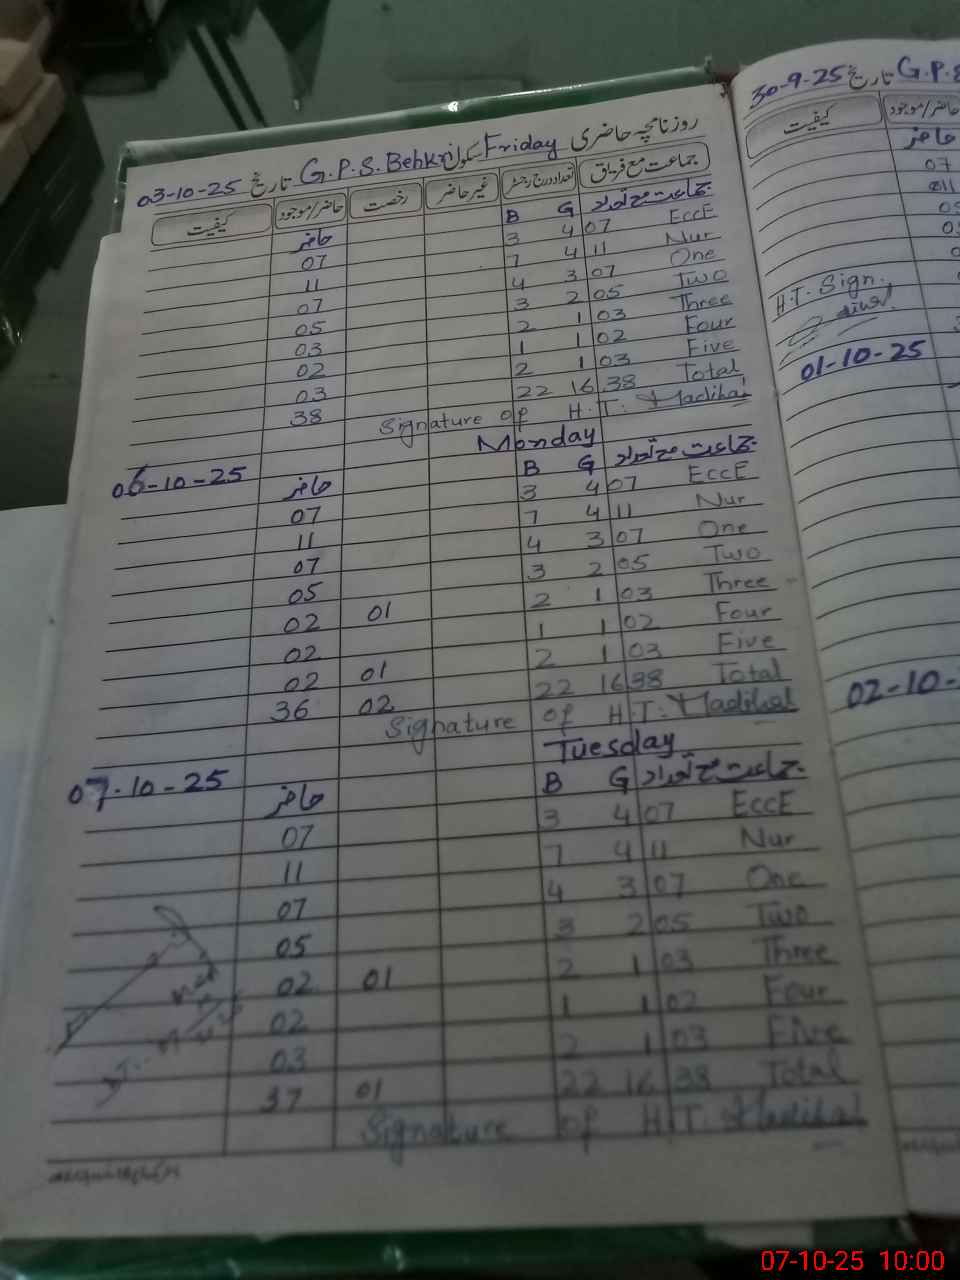 روزنامچہ حاضری سکول G.P.S. Behk Friday تاریخ 03-10-25
جماعت مع فریق تعداد درج رجسٹر غیر حاضر رخصت حاضر/موجود کیفیت
جماعت مع تعداد B G حاضر
EccE 07 4 3 07
Nur 11 4 7 11
One 07 3 4 07
Two 05 2 3 05
Three 03 1 2 03
Four 02 1 1 02
Five 03 1 2 03
Total 38 16 22 38
Signature of H.T: Hadihal
Monday
06-10-25 حاضر B G جماعت مع تعداد
EccE 07 4 3 07
Nur 11 4 7 11
One 07 3 4 07
Two 05 2 3 05
Three 03 1 2 01 02
Four 02 1 1 02
Five 03 1 2 01 02
Total 38 16 22 02 36
Signature of H.T: Hadihal
Tuesday
07-10-25 حاضر B G جماعت مع تعداد
EccE 07 4 3 07
Nur 11 4 7 11
One 07 3 4 07
Two 05 2 3 05
Three 03 1 2 01 02
Four 02 1 1 02
Five 03 1 2 03
Total 38 16 22 01 37
Signature of H.T. Hadihal
تاریخ 30-9-25 G.P.S
حاضر/موجود کیفیت
حاضر
07
11
H.T. Sign.
01-10-25
02-10-
07-10-25 10:00